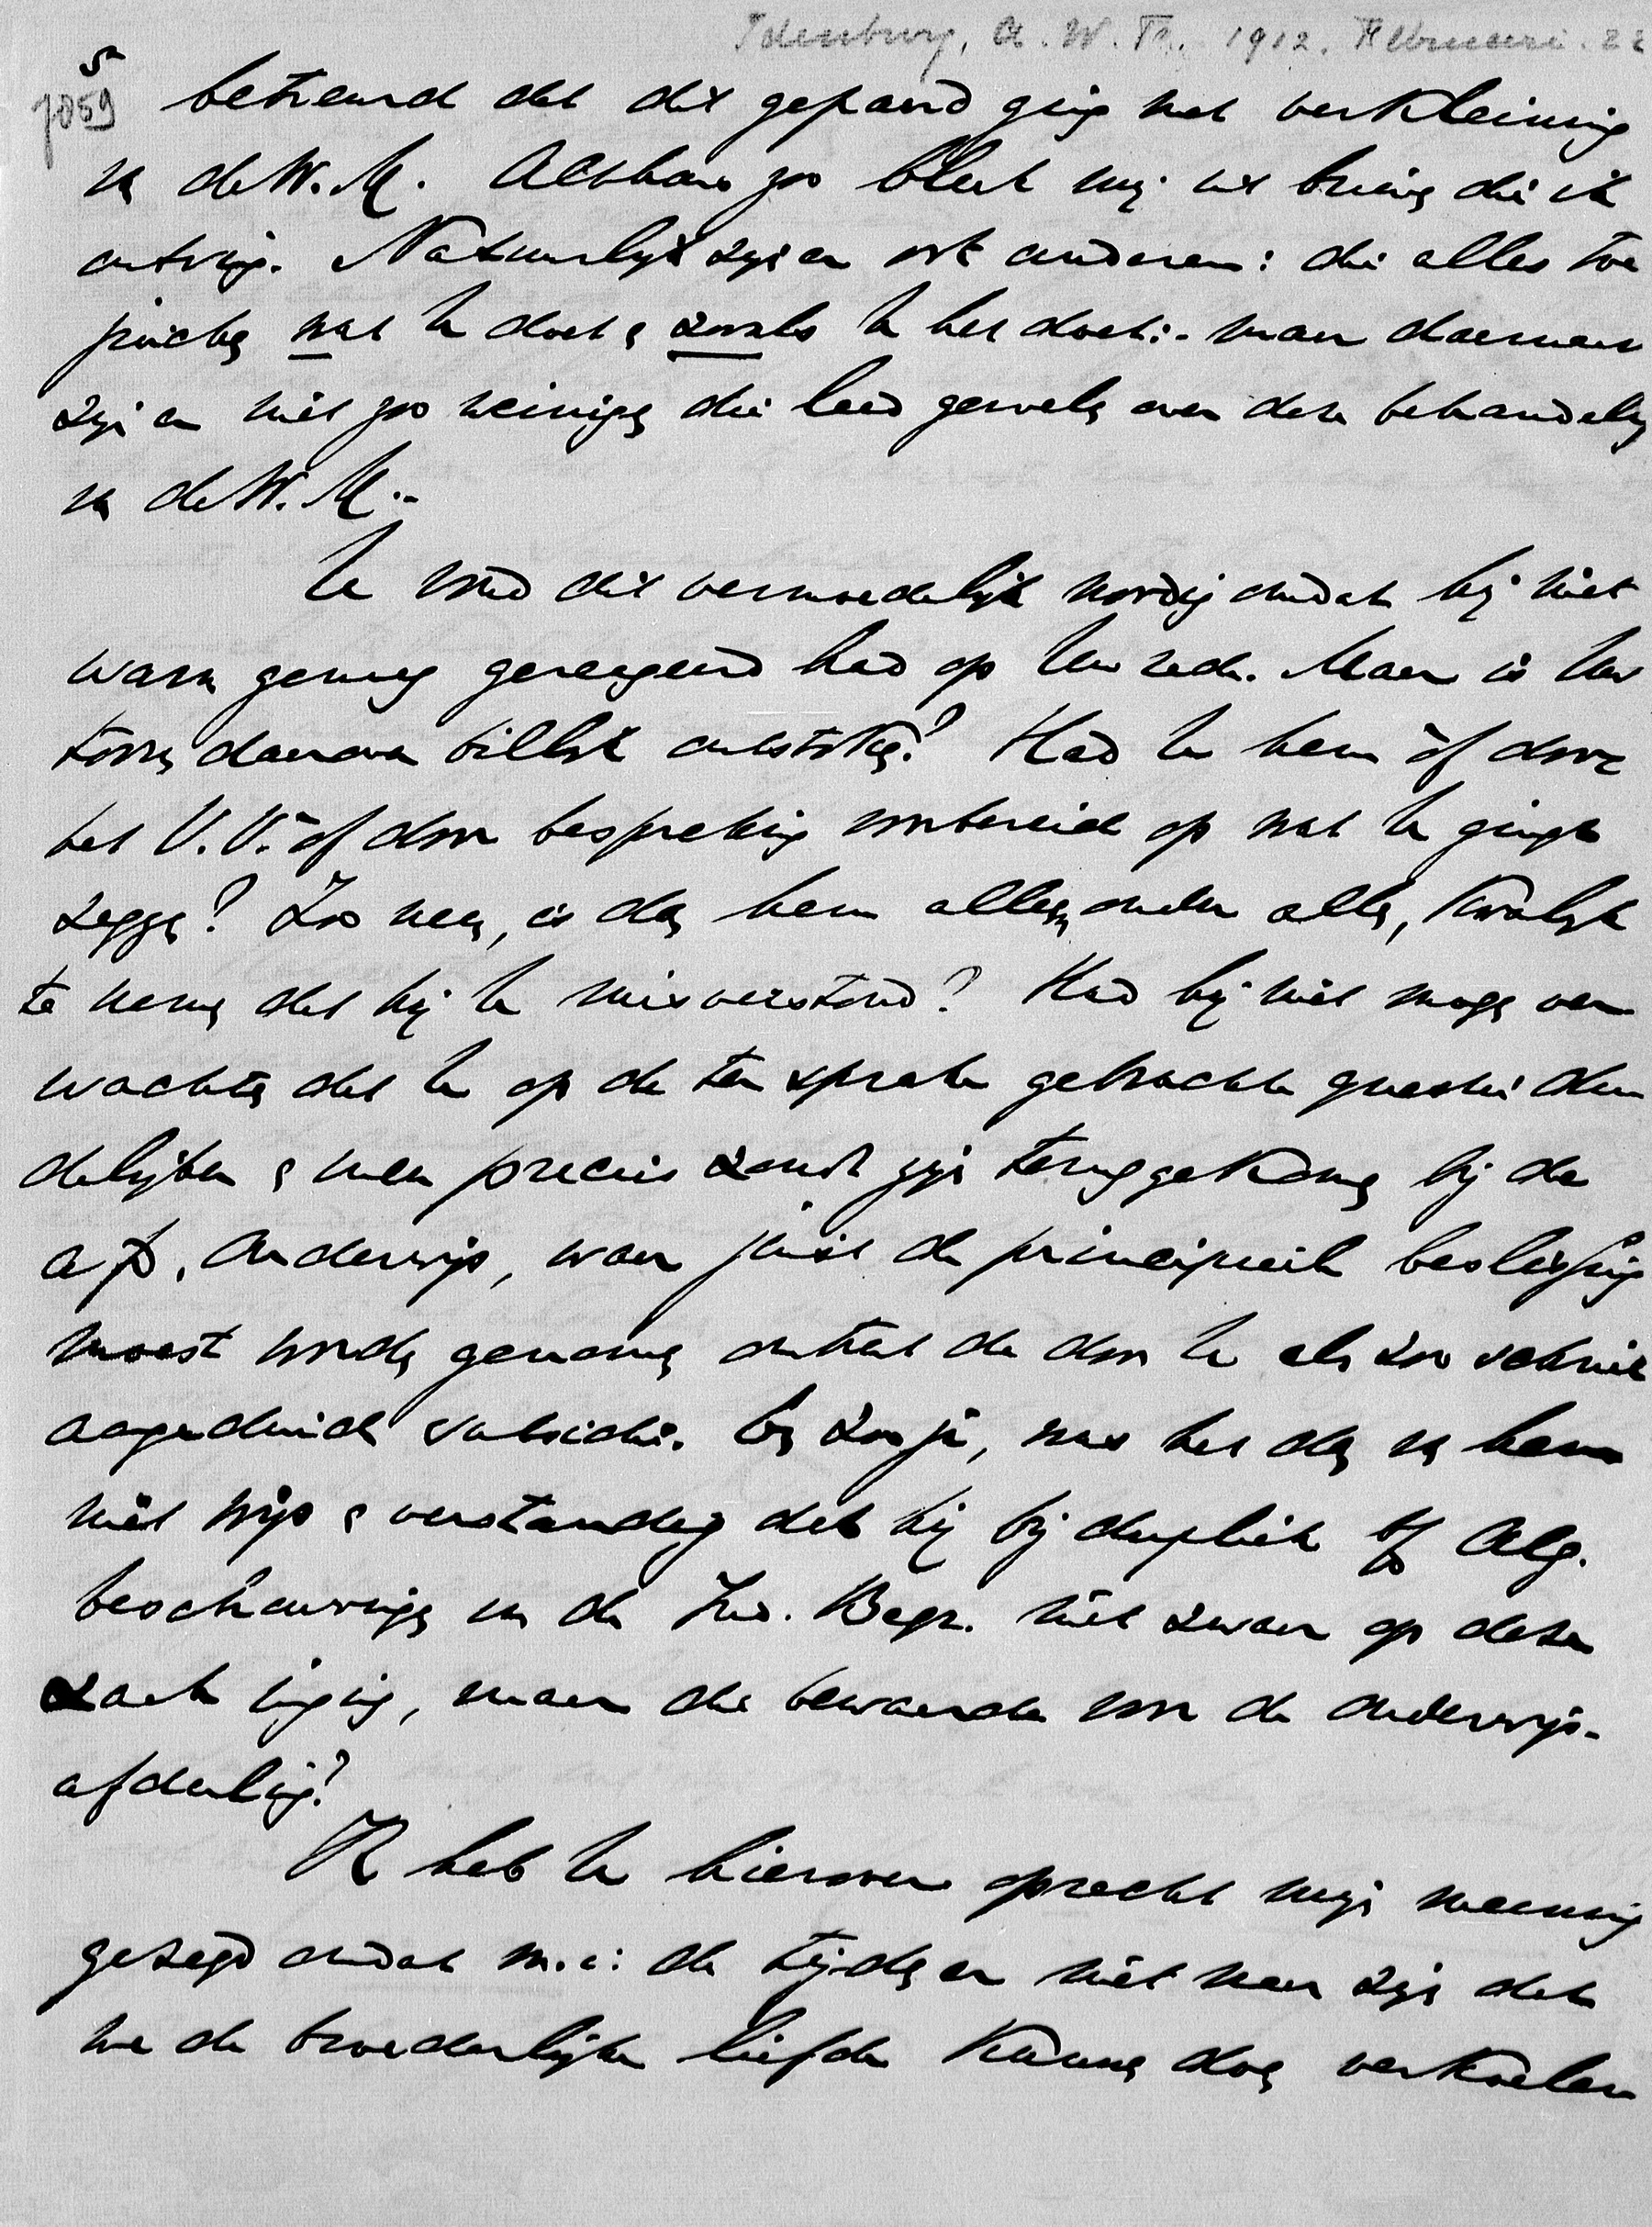 Idenburg, A. W. F. 1912. Februari. 22
5
7059
betreurd dat dit gepaard ging met verkleining
van de W. M. Althans zoo bleek mij uit brieven die ik
ontving. Natuurlijk zijn er ook anderen: die alles toe
juichen wat U doet en zooals U het doet:- maar daarnaast
zijn er niet zoo weinigen die leed gevoelen over deze behandeling
van de W. M.-
U vond dit vermoedelijk noodig omdat hij niet
warm genoeg gereageerd had op Uw rede. Maar is Uw
toorn daarover billijk ontstoken? Had U hem òf door
het V.V. òf door bespreking voorbereid op wat U gingt
zeggen? Zoo neen, is dan hem, alleen onder allen, kwalijk
te nemen dat hij U misverstond? Had hij niet mogen ver
wachten dat U op de ter sprake gebrachte questie dui
delijker en meer precies zoudt zijn teruggekomen bij de
afd. Onderwijs, waar juist de principieele beslissing
moest worden genomen omtrent de door U als zoo
aangeduide subsidie. En zoo ja, was het dan van hem
niet wijs en verstandig dat hij bij dupliek of Alg.
beschouwingen van de Ind. Begr. niet zwaar op deze
zaak inging, maar die bewaarde voor de onderwijs-
afdeeling?
Ik heb U hierover oprecht mijn meening
gezegd omdat m.i. de tijden er niet naar zijn dat
we de broederlijke liefde kunnen doen verkoelen